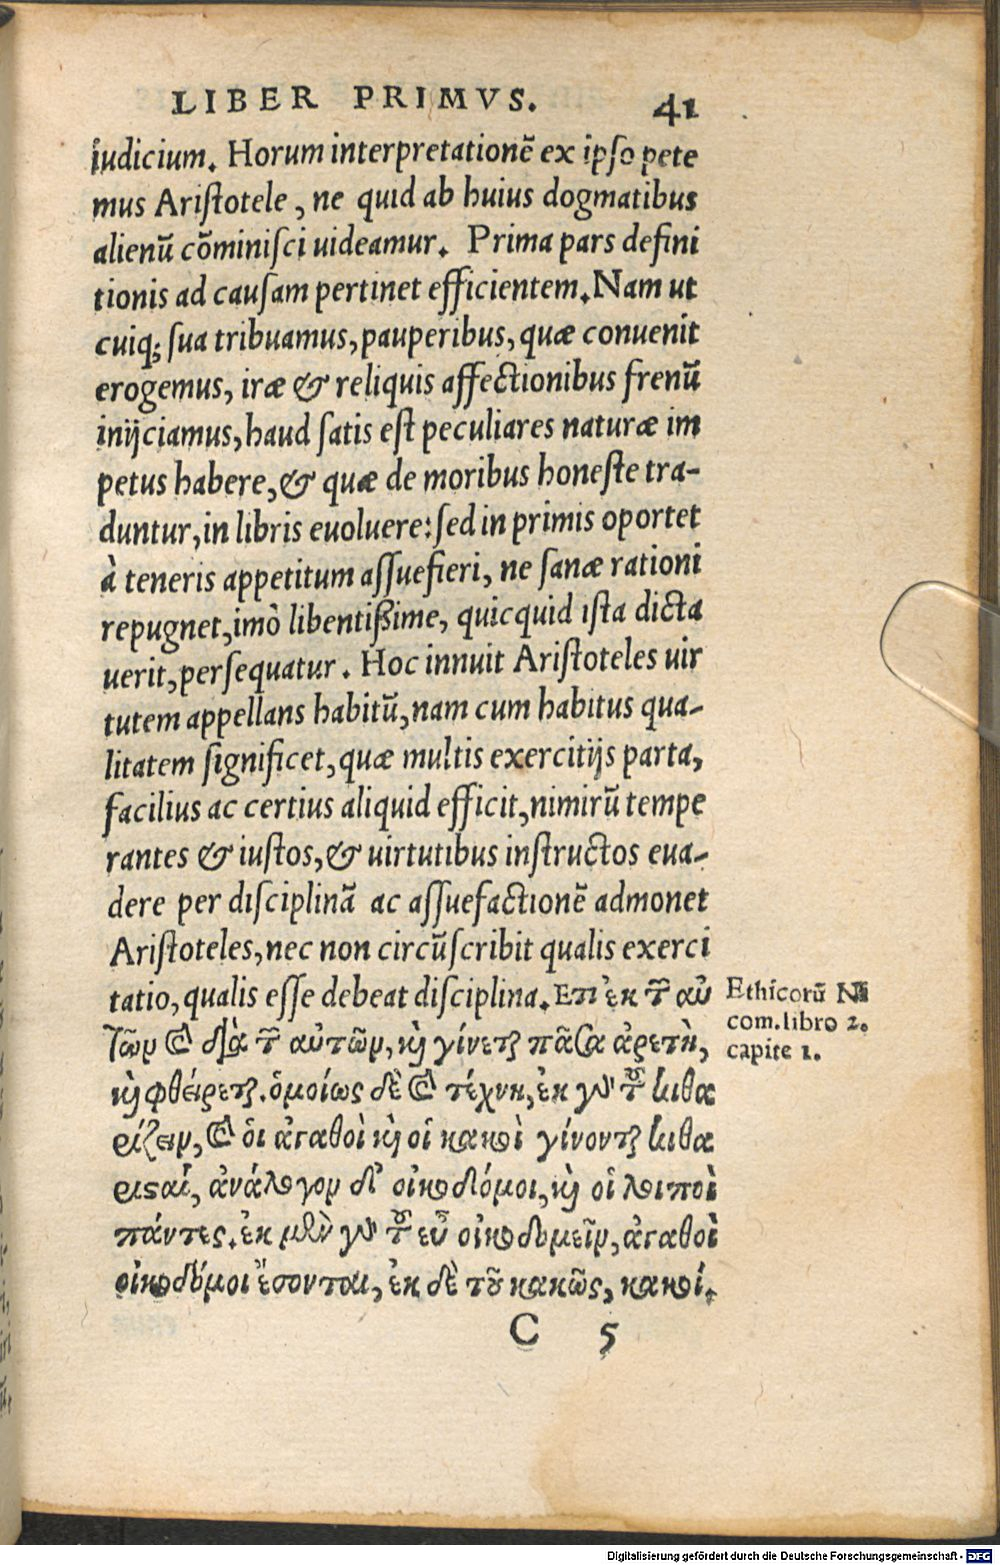 LIBER PRIMVS. 41
iudicium. Horum interpretationẽ ex ipso pete
mus Aristotele, ne quid ab huius dogmatibus
alienũ cõminisci uideamur. Prima pars defini
tionis ad causam pertinet efficientem. Nam ut
cuiq; sua tribuamus, pauperibus, quæ conuenit
erogemus, iræ & reliquis affectionibus frenũ
inijciamus, haud satis est peculiares naturæ im
petus habere, & quæ de moribus honeste tra-
duntur, in libris euoluere: sed in primis oportet
à teneris appetitum assuefieri, ne sanæ rationi
repugnet, imò libentißime, quicquid ista dicta
uerit, persequatur. Hoc innuit Aristoteles uir
tutem appellans habitũ, nam cum habitus qua-
litatem significet, quæ multis exercitijs parta,
facilius ac certius aliquid efficit, nimirũ tempe
rantes & iustos, & uirtutibus instructos eua-
dere per disciplinã ac assuefactionẽ admonet
Aristoteles, nec non circũscribit qualis exerci
tatio, qualis esse debeat disciplina. Ετι ἐκ τῶν αὐ
τῶν καὶ διὰ τῶν αὐτῶν, καὶ γίνεται πᾶσα ἀρετὴ,
καὶ φθείρεται. ὁμοίως δὲ καὶ τέχνη, ἐκ γὰρ τοῦ κιθα
ρίζειν, καὶ ὁι ἀγαθοὶ καὶ οἱ κακοὶ γίνονται κιθα
ρισαὶ, ἀνάλογον δὲ οἰκοδόμοι, καὶ οἱ λοιποὶ
πάντες. ἐκ μὲν γὰρ τοῦ εὖ οἰκοδομεῖν, ἀγαθοὶ
οἰκοδόμοι ἔσονται, ἐκ δὲ τοῦ κακῶς, κακοί.
Ethicorũ Ni
com. libro 2.
capite 1.
C 5
Digitalisierung gefördert durch die Deutsche Forschungsgemeinschaft - DFG